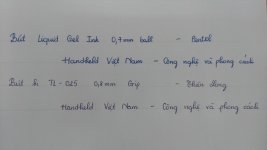 Bút Liquid Gel Ink 0,7mm ball - Pentel
Handheld Việt Nam - Công nghệ và phong cách
Bút bi TL-025 0,8mm Grip - Thiên Long
Handheld Việt Nam - Công nghệ và phong cách